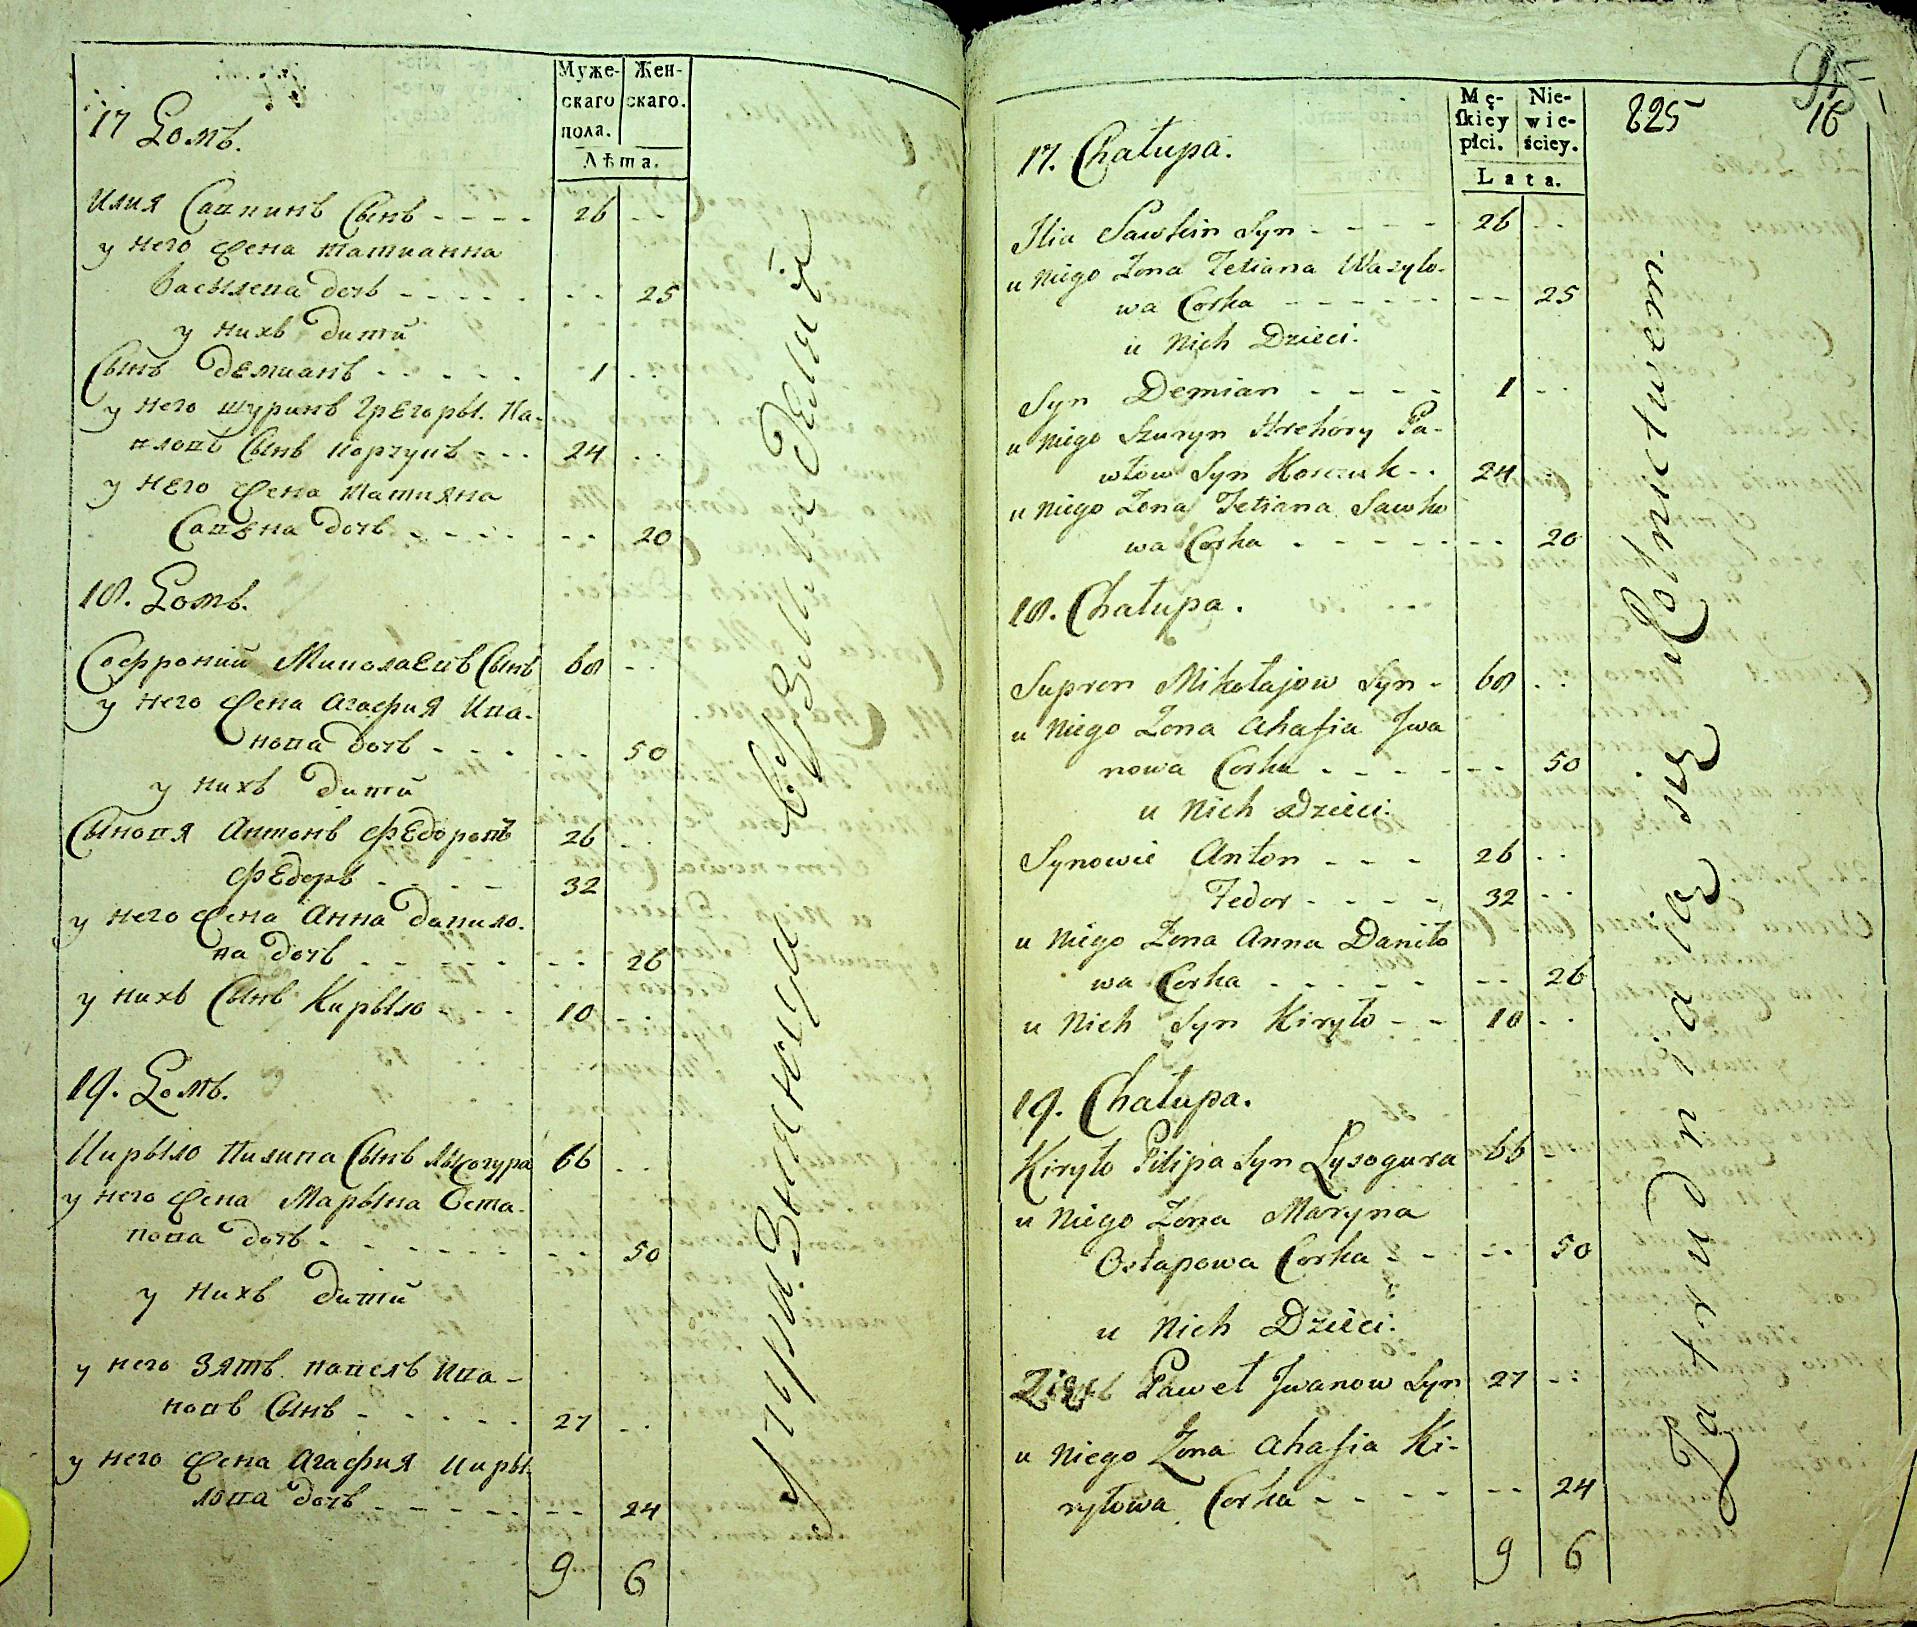 Муже-
скаго
пола.
Жен-
скаго.
Лѣта.
17 Домъ.
Илия Савкинъ Сынъ - - - - 26 - -
у него жена татианна
Васылева дочь - - - - - - - 25
у нихъ дитй
Сынъ демианъ - - - - - 1 - -
у него шуринъ Грегоры. Па-
вловъ Сынъ Корчукъ - - - 24 - -
у него жена татияна
Савкна дочь - - - - - - 20
18. Домъ.
Софроний Миколаевъ Сынъ 68 - -
у него жена агафия Ива-
нова дочь - - - - - - 50
у нихъ дитй
Сыновя антонъ федоровъ 26 - -
федоръ - - - - 32
у него жена Анна данило-
ва дочь - - - - - - - 26
у нихъ Сынъ Кирыло - - - 10 - -
19. Домъ.
Кирыло Пилипа Сынъ лысогура 66 - -
у него жена Марына Оста-
пова дочь - - - - - - - - 50
у нихъ дитй
у него зять павелъ Ива-
новъ Сынъ - - - - - 27 - -
у него жена агафия Киры
лова дочь - - - - - - - 24
9 6
Упражняются въ Земледелий
Mę-
skiey
płci.
Nie-
wie-
ściey.
Lata.
825
95
16
17. Chałupa.
Ilia Sawkin Syn - - - - 26 - -
u Niego Zona Tetiana Wasylo-
wa Corka - - - - - - - - 25
u Nich Dzieci.
Syn Demian - - - - 1 - -
u Niego Szuryn Hrehory Pa-
włow Syn Korczuk - - 24
u Niego Zona Tetiana Sawko
wa Corka - - - - - - - 20
18. Chałupa.
Supron Mikołajow Syn - 68 - -
u Niego Zona Ahafia Jwa
nowa Corka - - - - - - 50
u Nich Dzieci.
Synowie Anton - - - 26 - -
Fedor - - - - 32 - -
u Niego Zona Anna Daniło
wa Corka - - - - - - - 26
u Nich Syn Kiryło - - 10 - -
19. Chałupa.
Kiryło Pilipa Syn Lysogura 66 -
u Niego Zona Maryna
Ostapowa Corka - - - - 50
u Nich Dzieci.
Zięć Paweł Jwanow Syn 27 - -
u Niego Zona Ahafia Ki-
ryłowa Corka - - - - - - 24
9 6
Zatrudniaią się Rolnictwem.